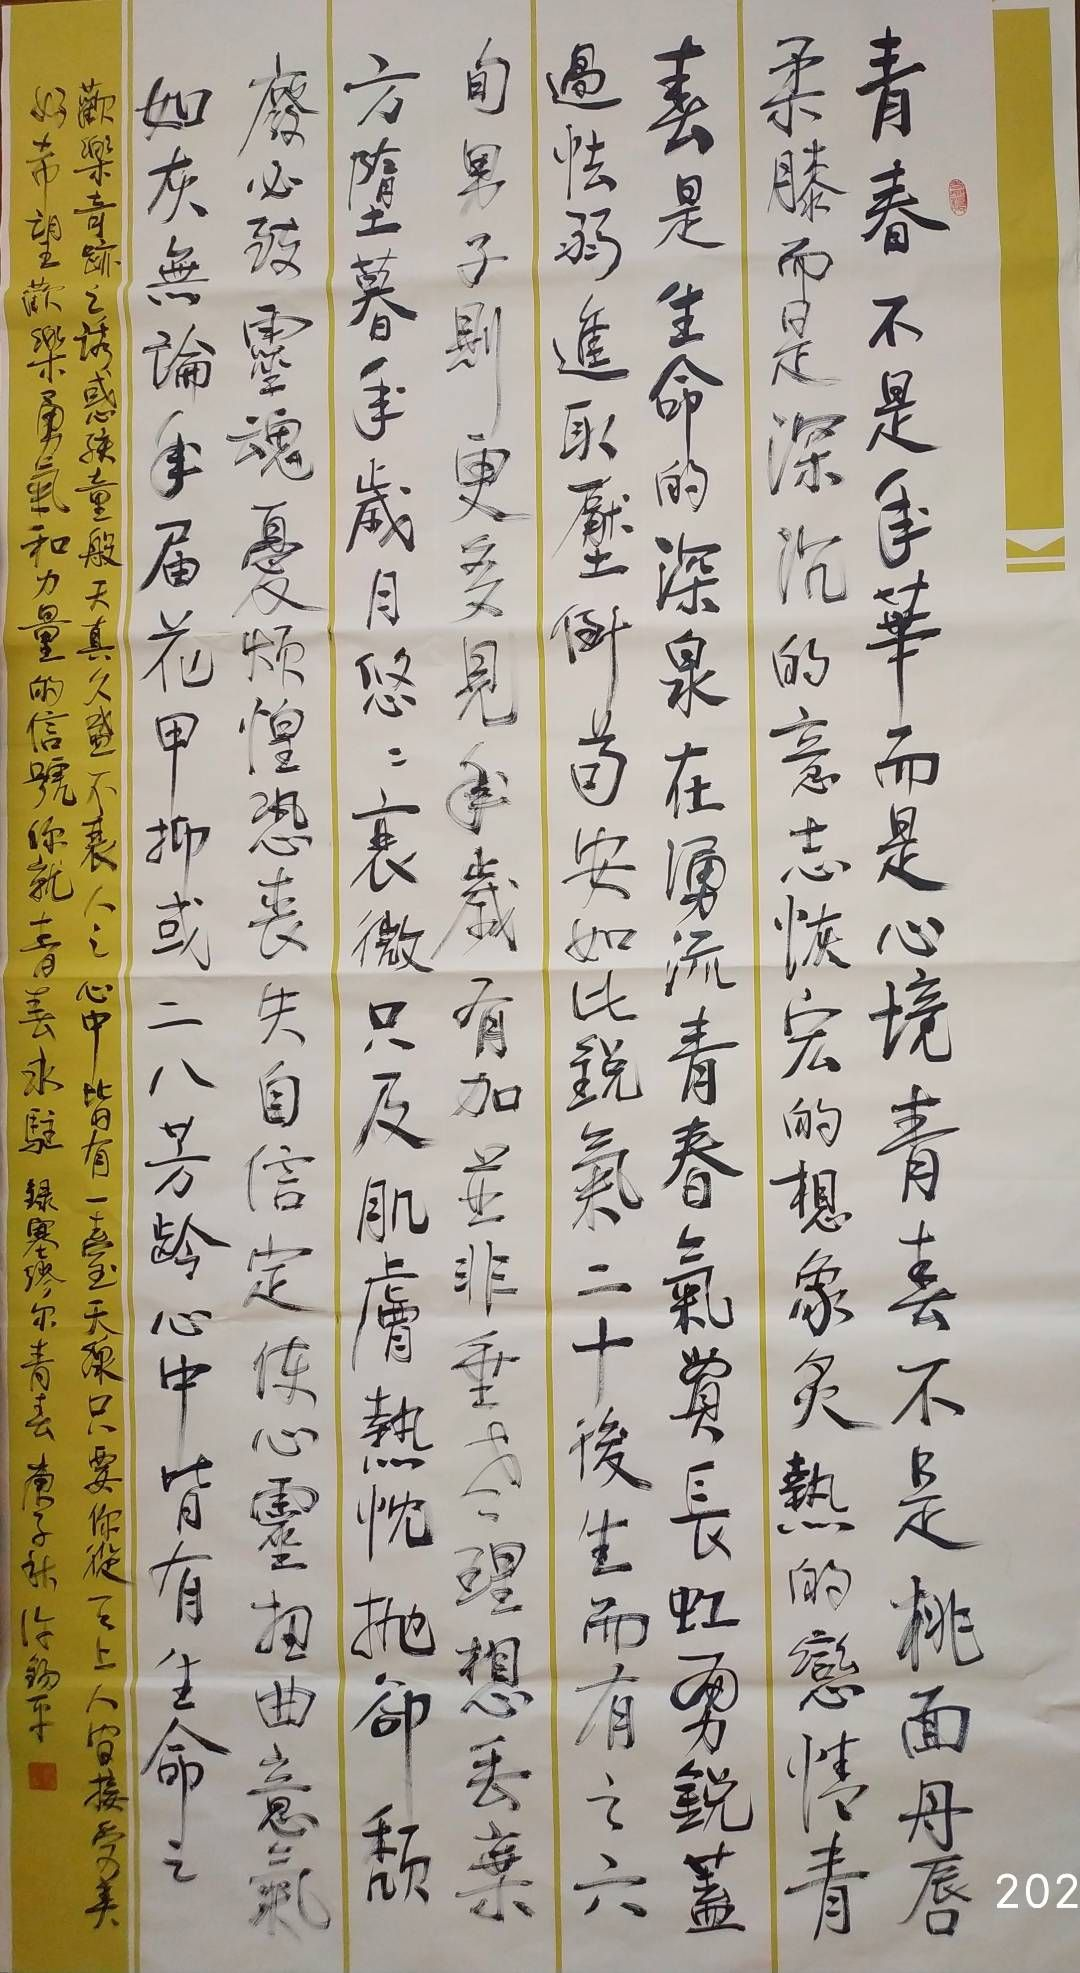 青春不是年華而是心境青春不是桃面丹唇
柔膝而是深沉的意志恢宏的想象炙熱的戀情青
春是生命的深泉在湧流青春氣貫長虹勇銳蓋
過怯弱進取壓倒苟安如此銳氣二十後生而有之六
旬男子則更多見年歲有加並非垂老理想丟棄
方墮暮年歲月悠〻衰微只及肌膚熱忱拋卻頹
廢必致靈魂憂煩惶恐喪失自信定使心靈扭曲意氣
如灰無論年届花甲抑或二八芳齡心中皆有生命之
歡樂奇跡之誘惑孩童般天真久盛不衰人之心中皆有一臺天線只要你從天上人間接受美
好希望歡樂勇氣和力量的信號你就青春永駐 錄塞繆尔青春 庚子秋 許錫平
202